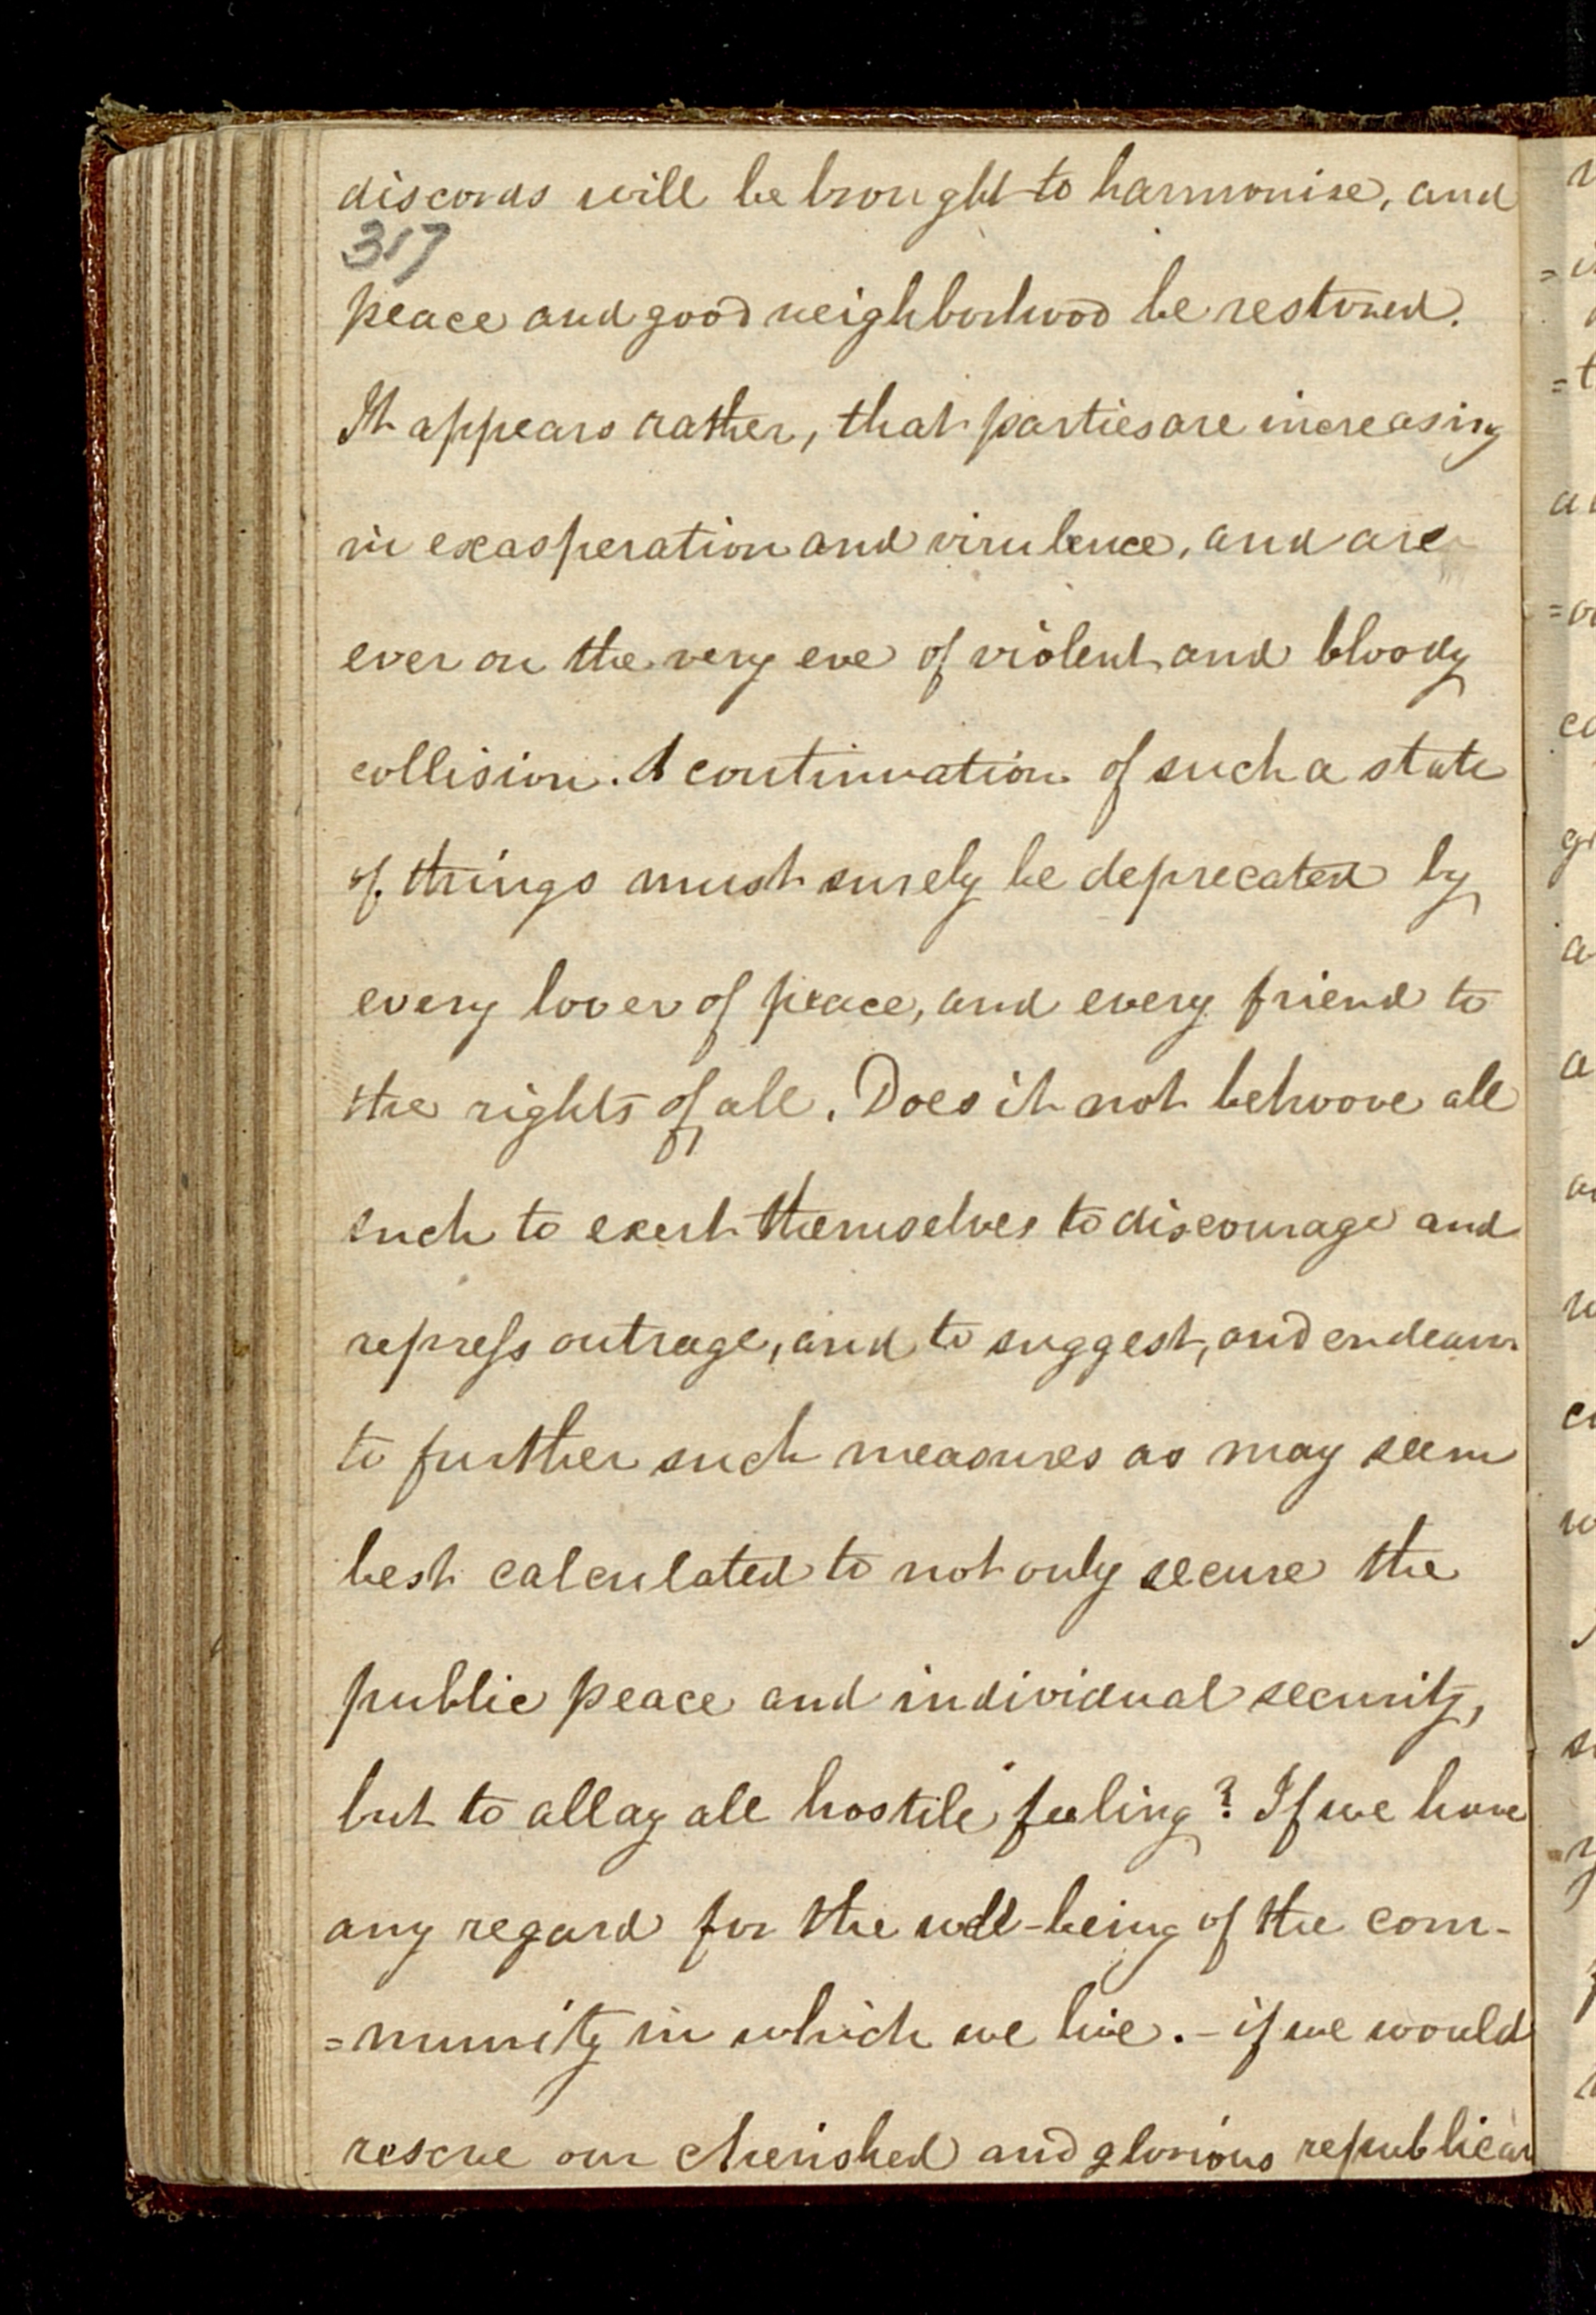 discords will be brought to harmonise, and
317
peace and good neighborhood be restored.
It appears rather, that parties are increasing
in exasperation and virulence, and are
ever on the very eve of violent and bloody
collision. A continuation of such a state
of things must surely be deprecated by
every lover of peace, and every friend to
the rights of all. Does it not behoove all
such to exert themselves to discourage and
repress outrage, and to suggest, and endeavor
to further such measures as may seem
best calculated to not only secure the
public peace and individual security,
but to allay all hostile feeling? If we have
any regard for the well-being of the com-
=munity in which we live. - if we would
rescue our cherished and glorious republican